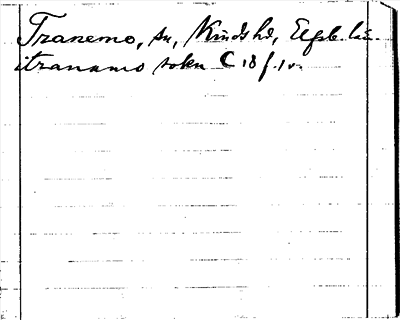 Tranemo, sn, Kinds hd, Elfsb. län.
itranamo sokn C 18 f. 1 v.